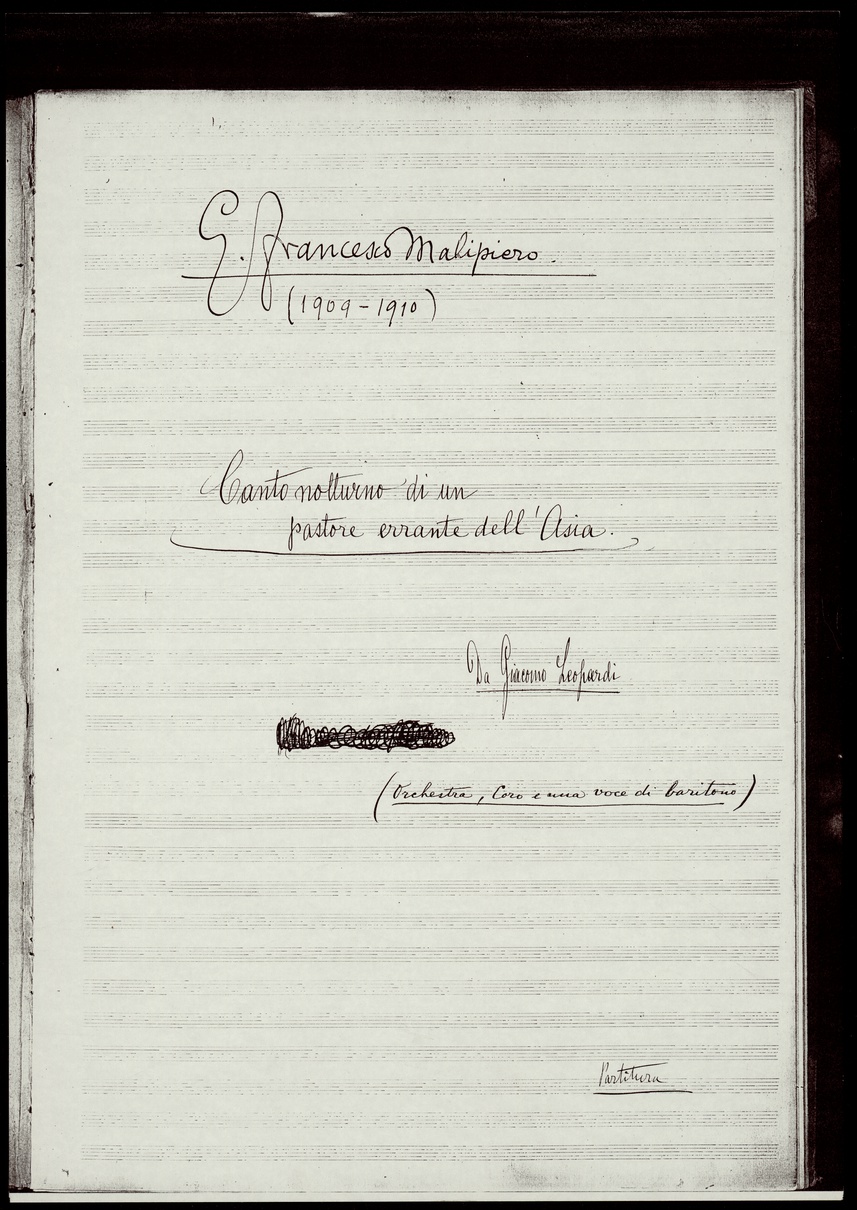 G. Francesco Malipiero.
(1909-1910)
Canto notturno di un
pastore errante dell'Asia.
Da Giacomo Leopardi
(Orchestra, Coro e una voce di baritono)
Partitura